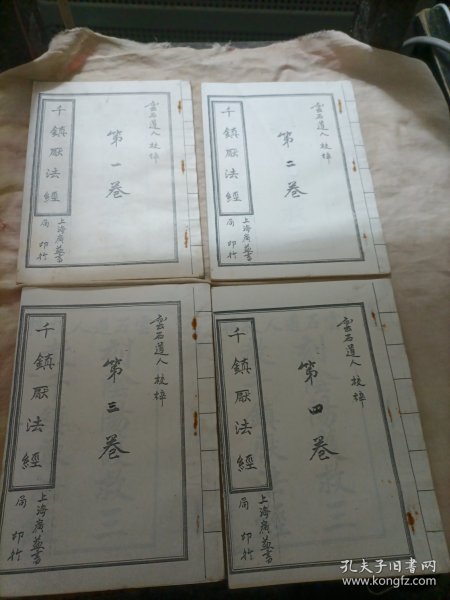 雲石道人校梓
第一卷
千鎮厭法經
上海廣益書
局印行
雲石道人校梓
第二卷
千鎮厭法經
上海廣益書
局印行
雲石道人校梓
第三卷
千鎮厭法經
上海廣益書
局印行
雲石道人校梓
第四卷
千鎮厭法經
上海廣益書
局印行
孔夫子旧书网
www.kongfz.com